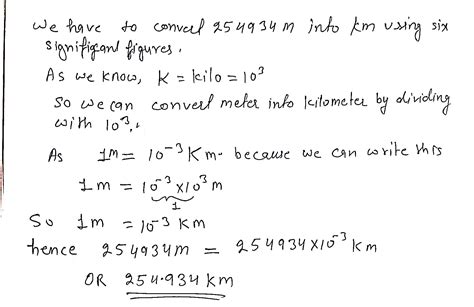 We have to convert 254934 m into km using six
signifigant figures.
As we know, K = kilo = 10³
So we can convert meter into kilometer by dividing
with 10³.
As 1m = 10⁻³ Km. because we can write this
1m = 10⁻³ × 10³ m
1
So 1m = 10⁻³ KM
hence 254934m = 254934×10⁻³ KM
OR 254.934 KM